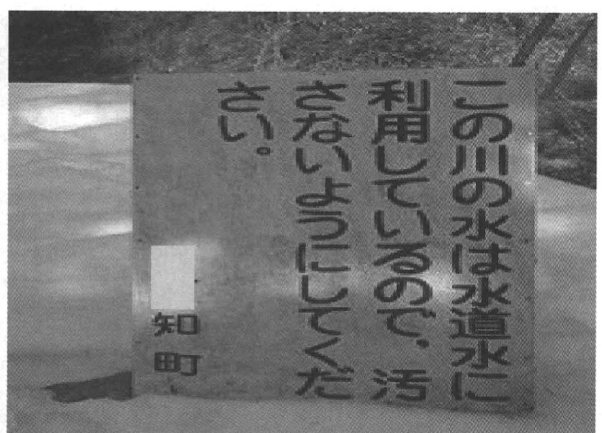 この川の水は水道水に
利用しているので、汚
さないようにしてくだ
さい。
知町